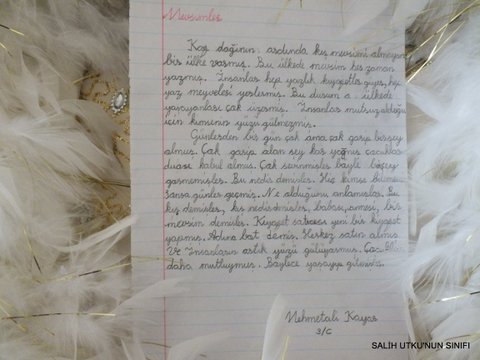 Mevsimler
Kaş dağının ardında kış mevsimi olmayan
bir ülke varmış. Bu ülkede mevsim her zaman
yazmış. İnsanlar hep yazlık kıyafetler giyer, hep
yaz meyveleri yerlermiş. Bu durum o ülkede
yaşayanları çok üzermiş. İnsanlar mutsuz olduğu
için kimsenin yüzü gülmezmiş.
Günlerden bir gün çok ama çok garip bir şey
olmuş. Çok garip olan şey kar yağmış çocukların
duası kabul olmuş. Çok sevinmişler böyle birşey
görmemişler. Bu nedir demişler. Hiç kimse bilmemiş
Sonra günler geçmiş. Ne olduğunu anlamışlar. Bu
kış demişler, kış nedir demişler, babası, annesi, bir
mevsim demişler. Kıyafet satıcısı yeni bir kıyafet
yapmış. Adına bot demiş. Herkez satın almış.
Ve İnsanların artık yüzü gülüyormuş.
daha mutluymuş. Böylece yaşayıp gitmişler.
Mehmetali Kayas
3/C
SALİH UTKU'NUN SINIFI